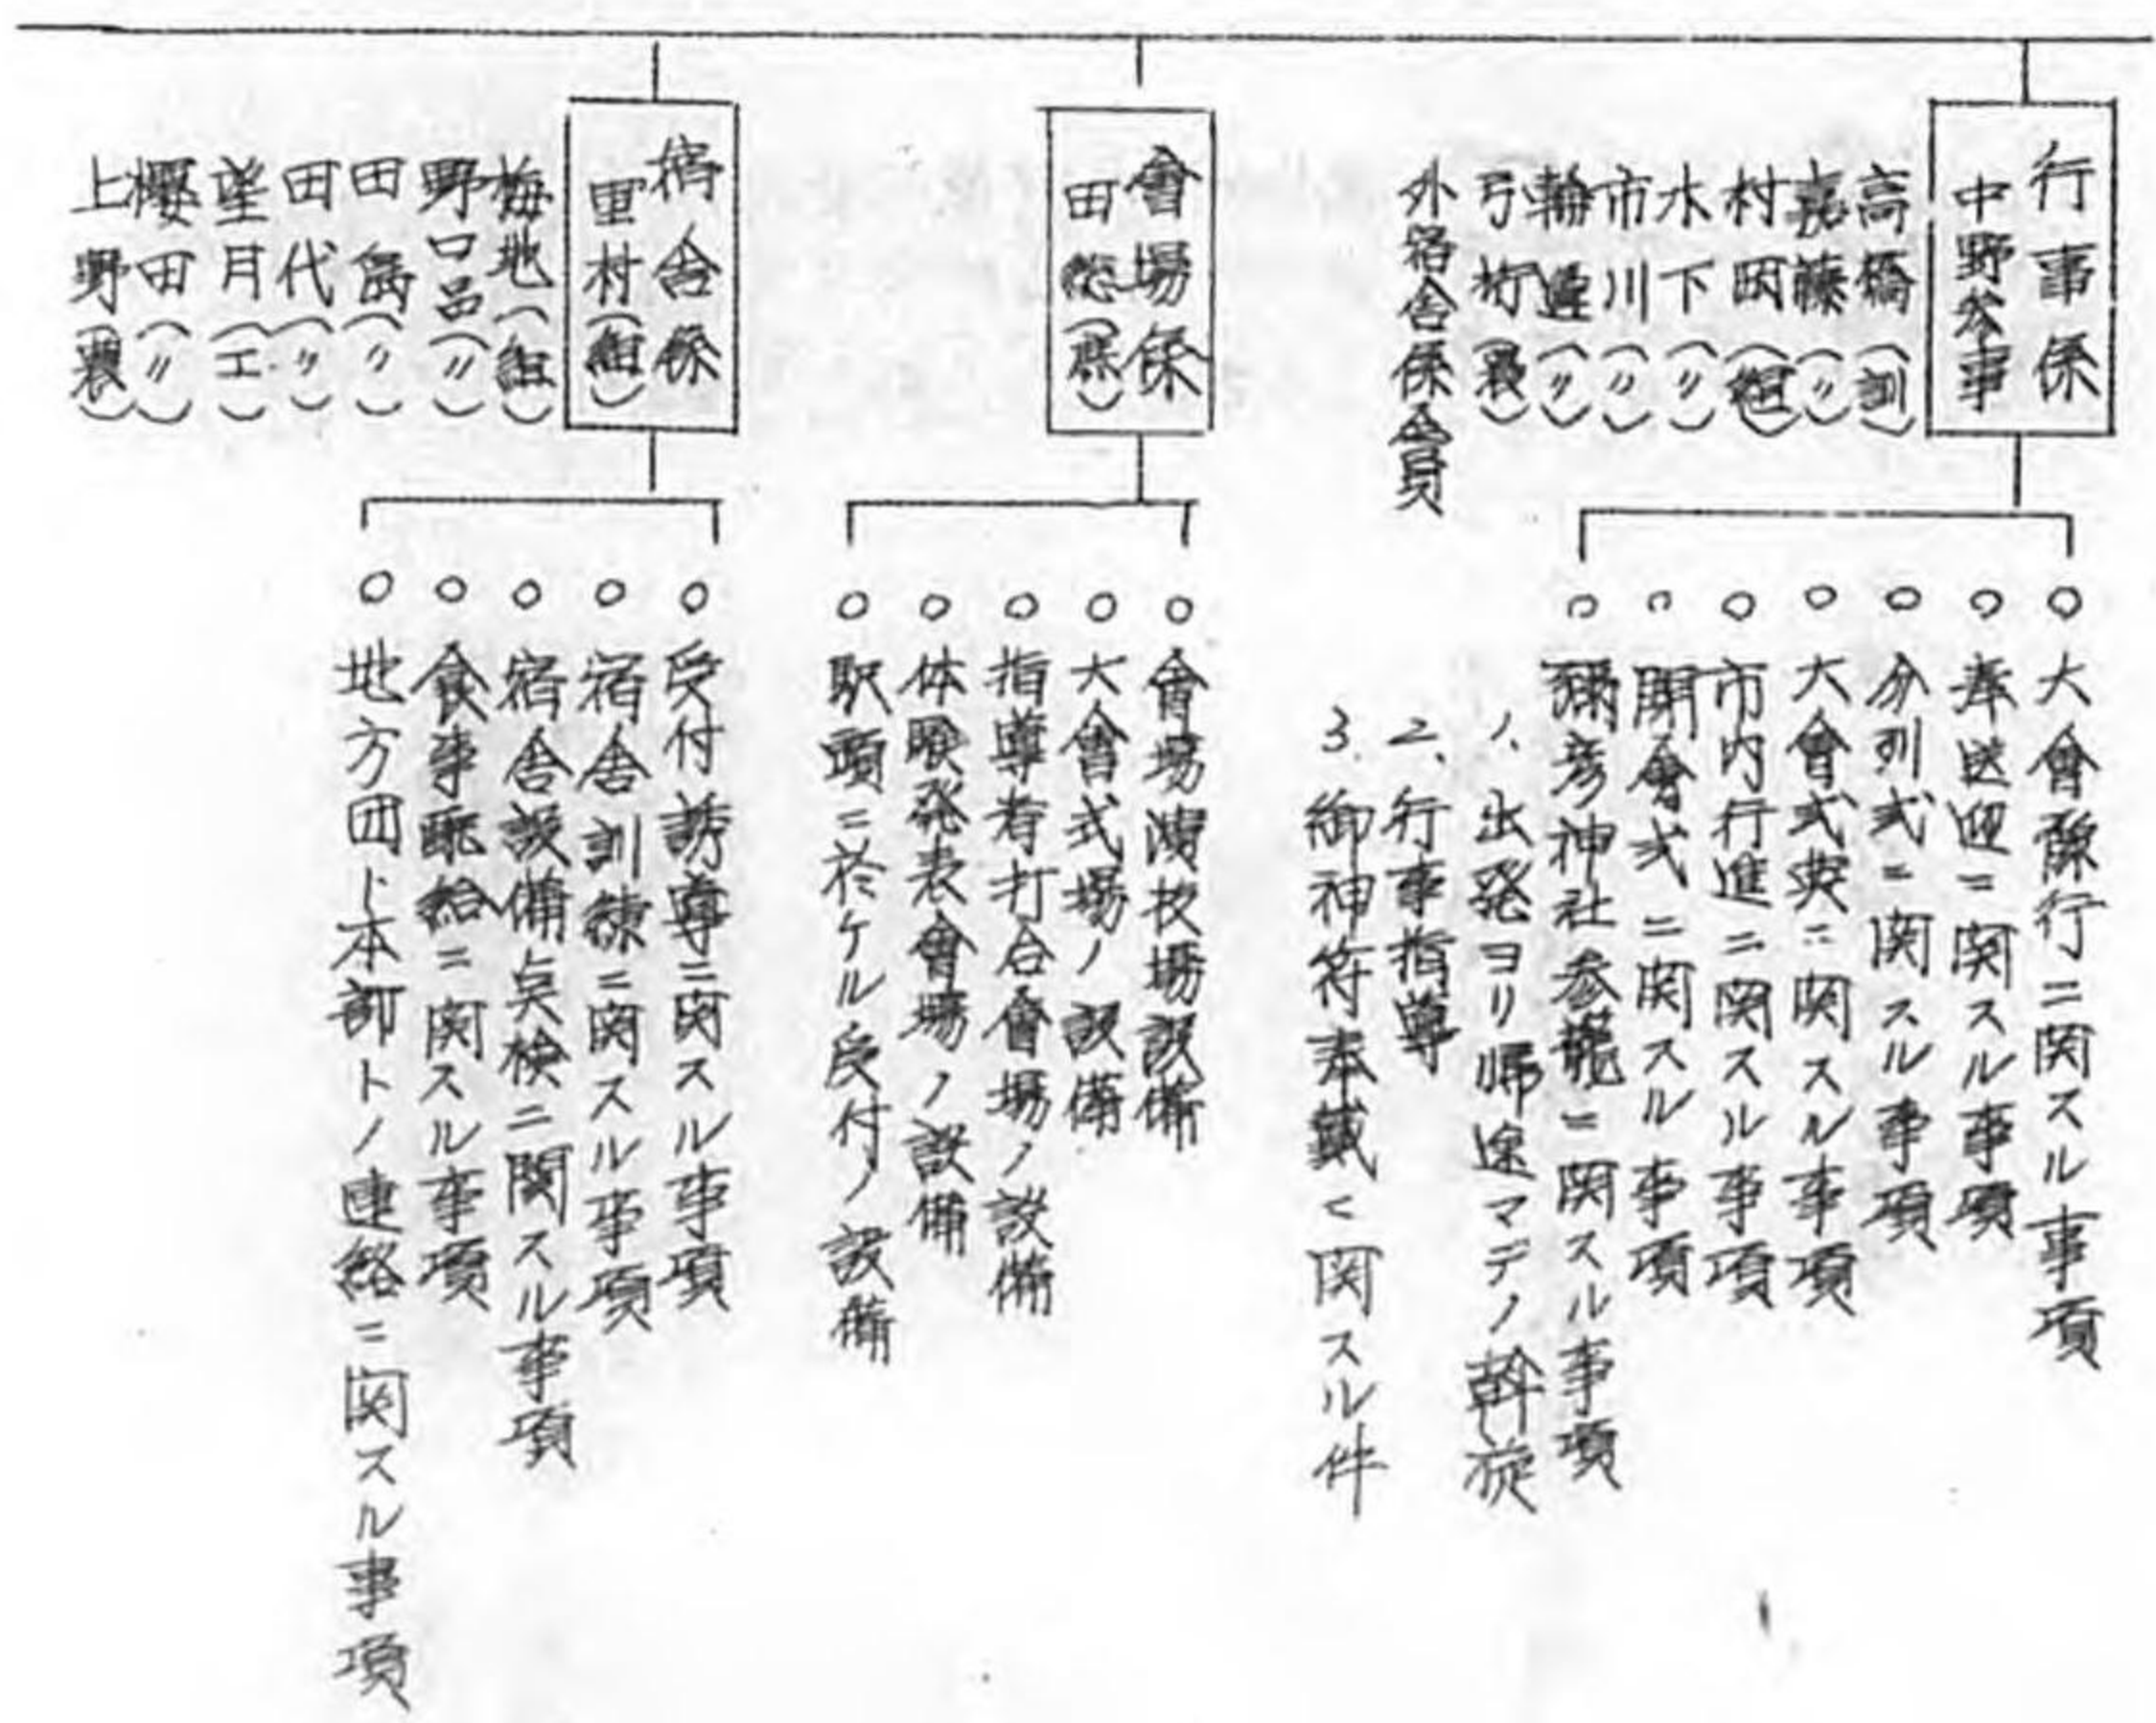 行事係
中野参事
高橋（訓）
嘉藤（〃）
村岡（組）
木下（〃）
市川（〃）
輪違（〃）
弓桁（農）
外宿舎係全員
○大會豫行ニ関スル事項
○奉送迎ニ関スル事項
○分列式ニ関スル事項
○大會式典ニ関スル事項
○市内行進ニ関スル事項
○開會式ニ関スル事項
○彌彦神社参拝ニ関スル事項
1、出発ヨリ帰途マデノ幹旋
2、行事指導
3.御神符奉戴ニ関スル件
會場係
田（）
○會場演技場設備
○大會式場ノ設備
○指導者打合會場ノ設備
○体験発表會場ノ設備
○駅頭ニ於ケル受付ノ設備
宿舎係
里村（組）
梅地（組）
野口品（〃）
田島（〃）
田代（〃）
望月（工）
櫻田（〃）
上野（農）
○受付誘導ニ関スル事項
○宿舎訓練ニ関スル事項
○宿舎設備点検ニ関スル事項
○食事配給ニ関スル事項
○地方団ト本部トノ連絡ニ関スル事項